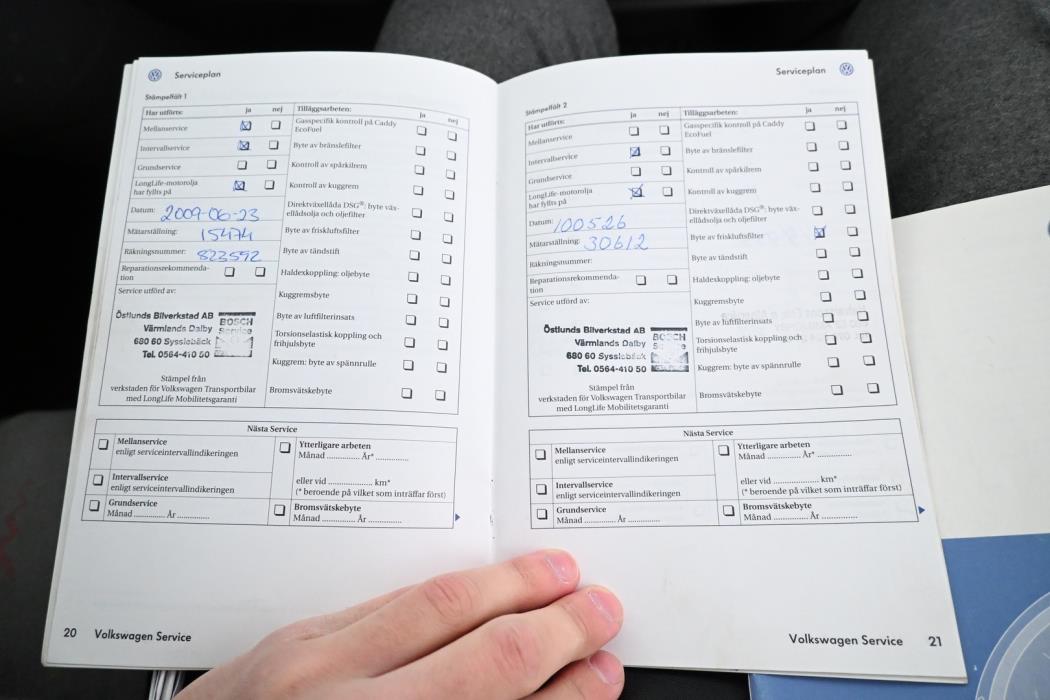 Serviceplan
Stämpelfält 1
Har utförts: ja nej
Mellanservice
Intervallservice
Grundservice
LongLife-motorolja
har fyllts på
Datum: 2009-06-23
Mätarställning: 15474
Räkningsnummer: 823592
Reparationsrekommenda-
tion
Service utförd av:
Östlunds Bilverkstad AB
Värmlands Dalby
680 60 Sysslebäck
Tel. 0564-410 50
BOSCH
Service
Stämpel från
verkstaden för Volkswagen Transportbilar
med LongLife Mobilitetsgaranti
Tilläggsarbeten: ja nej
Gasspecifik kontroll på Caddy
EcoFuel
Byte av bränslefilter
Kontroll av spårkilrem
Kontroll av kuggrem
Direktväxellåda DSG®: byte väx-
ellådsolja och oljefilter
Byte av friskluftsfilter
Byte av tändstift
Haldexkoppling: oljebyte
Kuggremsbyte
Byte av luftfilterinsats
Torsionselastisk koppling och
frihjulsbyte
Kuggrem: byte av spännrulle
Bromsvätskebyte
Nästa Service
Mellanservice
enligt serviceintervallindikeringen
Intervallservice
enligt serviceintervallindikeringen
Grundservice
Månad ............ År ............
Ytterligare arbeten
Månad ............ År* ............
eller vid ................ km*
(* beroende på vilket som inträffar först)
Bromsvätskebyte
Månad ............ År ............
20 Volkswagen Service
Serviceplan
Stämpelfält 2
Har utförts: ja nej
Mellanservice
Intervallservice
Grundservice
LongLife-motorolja
har fyllts på
Datum: 100526
Mätarställning: 30612
Räkningsnummer:
Reparationsrekommenda-
tion
Service utförd av:
Östlunds Bilverkstad AB
Värmlands Dalby
680 60 Sysslebäck
Tel. 0564-410 50
BOSCH
Stämpel från
verkstaden för Volkswagen Transportbilar
med LongLife Mobilitetsgaranti
Tilläggsarbeten: ja nej
Gasspecifik kontroll på Caddy
EcoFuel
Byte av bränslefilter
Kontroll av spårkilrem
Kontroll av kuggrem
Direktväxellåda DSG®: byte väx-
ellådsolja och oljefilter
Byte av friskluftsfilter
Byte av tändstift
Haldexkoppling: oljebyte
Kuggremsbyte
Byte av luftfilterinsats
Torsionselastisk koppling och
frihjulsbyte
Kuggrem: byte av spännrulle
Bromsvätskebyte
Nästa Service
Mellanservice
enligt serviceintervallindikeringen
Intervallservice
enligt serviceintervallindikeringen
Grundservice
Månad ............ År ............
Ytterligare arbeten
Månad ............ År* ............
eller vid ................ km*
(* beroende på vilket som inträffar först)
Bromsvätskebyte
Månad ............ År ............
Volkswagen Service 21